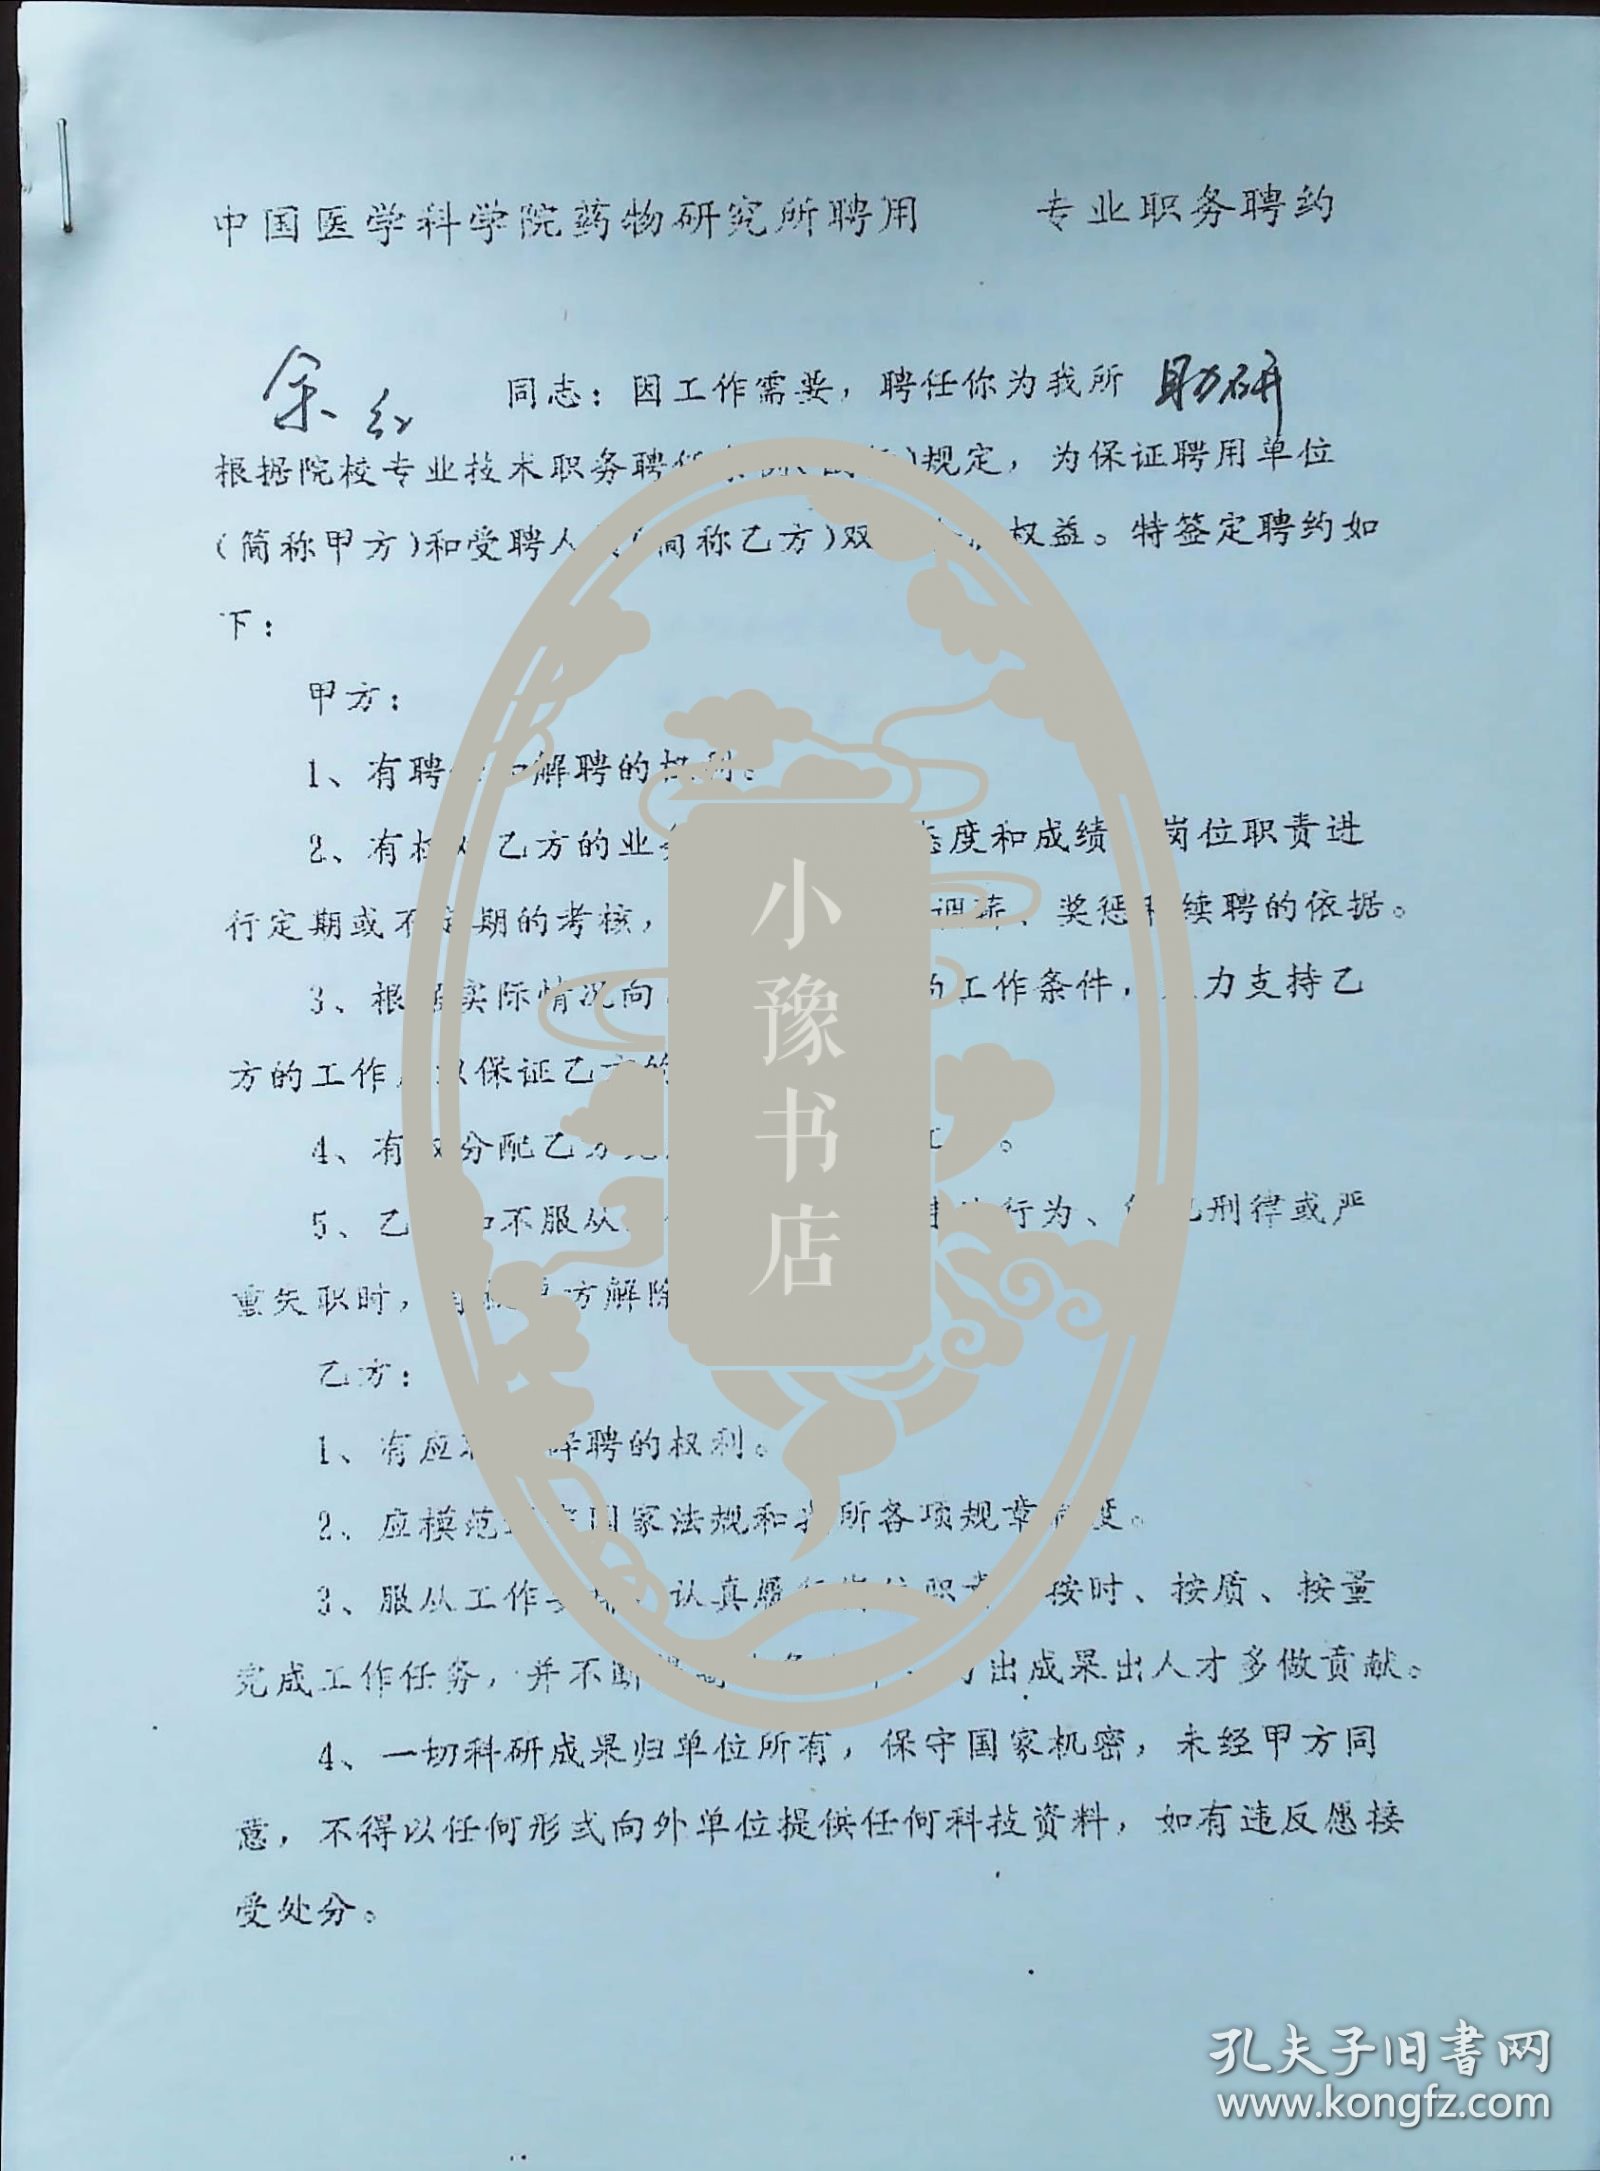 中国医学科学院药物研究所聘用 专业职务聘约
余红 同志：因工作需要，聘任你为我所 助研
根据院校专业技术职务聘任 规定，为保证聘用单位
(简称甲方)和受聘人 简称乙方)双 权益。特签定聘约如
下：
甲方：
1、有聘 解聘的权利。
2、有 乙方的业 态度和成绩 岗位职责进
行定期或不定期的考核， 调薪、奖惩和续聘的依据。
3、根据实际情况向 的工作条件， 力支持乙
方的工作，以保证乙方的
4、有权分配乙方 工 。
5、乙 不服从 行为、 刑律或严
重失职时， 方解除
乙方：
1、有应 解聘的权利。
2、应模范 国家法规和我所各项规章制度。
3、服从工作 认真履行岗位职责 按时、按质、按量
完成工作任务，并不断 出成果出人才多做贡献。
4、一切科研成果归单位所有，保守国家机密，未经甲方同
意，不得以任何形式向外单位提供任何科技资料，如有违反愿接
受处分。
小豫书店
孔夫子旧书网
www.kongfz.com